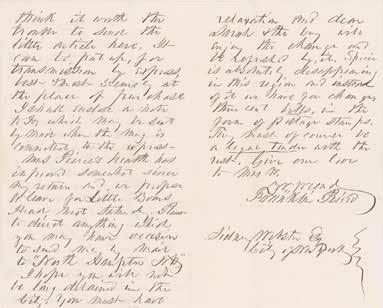 think it worth the
trouble to send the
little article here. It
can be put up, for
transmission by express,
at the place of purchase
I shall enclose a note
to which may be sent
by more when the mug is
committed to the express-
Mrs Pierce's health has
improved somewhat since
my return and we propose
to leave for Little Boars
Head next Please
to direct anything which
you may have occasion
to send me by mail
to "North Hampton N.H."
I hope you will not
be long detained in the
City. You must have
relaxation and dear
Sarah & the boy will
enjoy the change and
be refreshed by it. Specie
is absolutely disappearing
in this region and instead
of it we have for change
three cent bills, in the
form of postage stamps.
They must of course be
a legal tender with the
rest. Give our love
to Mrs W.
Yr. friend
Franklin Pierce
Sidney Webster Esq
City of New York